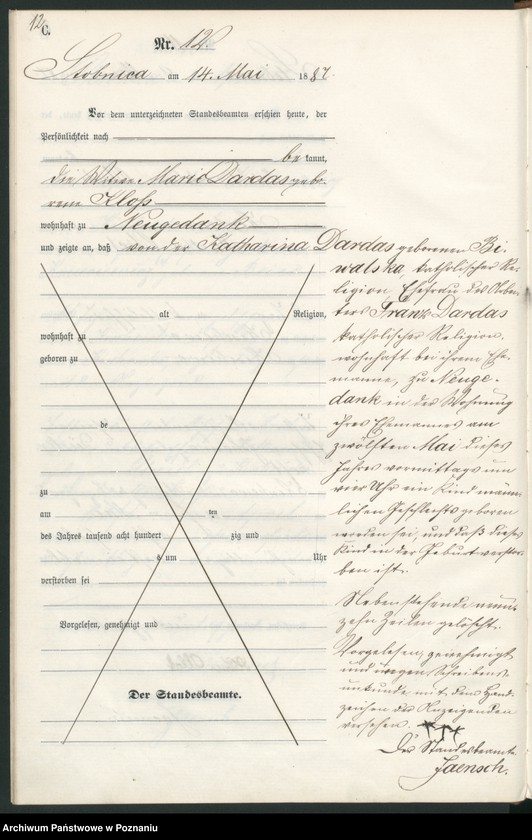 12
C.
Nr. 12.
Stobnica am 14. Mai 1887.
Vor dem unterzeichneten Standesbeamten erschien heute, der
Persönlichkeit nach
be kannt,
die Witwe Marie Dardas gebo-
rene Kloß
wohnhaft zu Neugedank
und zeigte an, daß von der Katharina Dardas geborenen Bi
walska, katholischer Re-
ligion, Ehefrau des Arbei-
ters Franz Dardas
katholischer Religion,
wohnhaft bei ihrem Ehe-
manne, zu Neuge-
dank in der Wohnung
ihres Ehemannes am
zwölften Mai dieses
Jahres vormittags um
vier Uhr ein Kind männ-
lichen Geschlechts geboren
worden sei, und daß dieses
Kind in der Geburt verstor-
ben ist.
Nebenstehende neun-
zehn Zeilen gelöscht.
Vorgelesen, genehmigt
und wegen Schreibens-
unkunde mit dem Hand-
zeichen der Anzeigenden
versehen. +++
Der Standesbeamte
Jaensch.
alt Religion,
wohnhaft zu
geboren zu
de
zu
am ten
des Jahres tausend acht hundert zig und
s um Uhr
verstorben sei
Vorgelesen, genehmigt und
Der Standesbeamte.
Archiwum Państwowe w Poznaniu